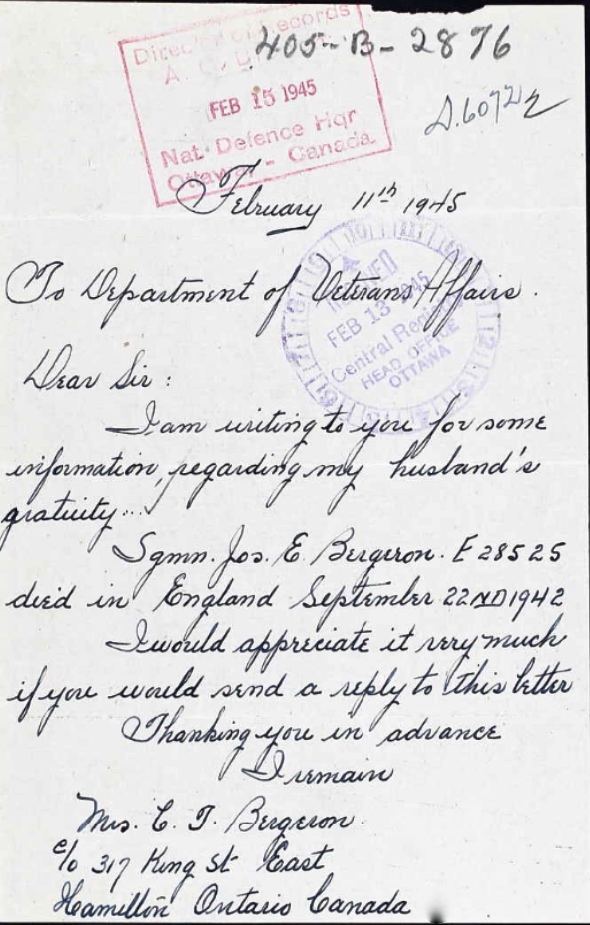 Director of Records
405-B-2876
A.
FEB 15 1945
Nat. Defence Hqr
Ottawa - Canada.
February 11th 1945
To Department of Veterans Affairs.
FEB 13 1945
Central Registry
HEAD OFFICE
OTTAWA
Dear Sir :
I am writing to you for some
information, regarding my husband's
gratuity...
Sgmn. Jos. E. Bergeron. E 28525
died in England September 22ND 1942
I would appreciate it very much
if you would send a reply to this letter
Thanking you in advance
I remain
Mrs. C. T. Bergeron
c/o 317 King St East
Hamilton Ontario Canada